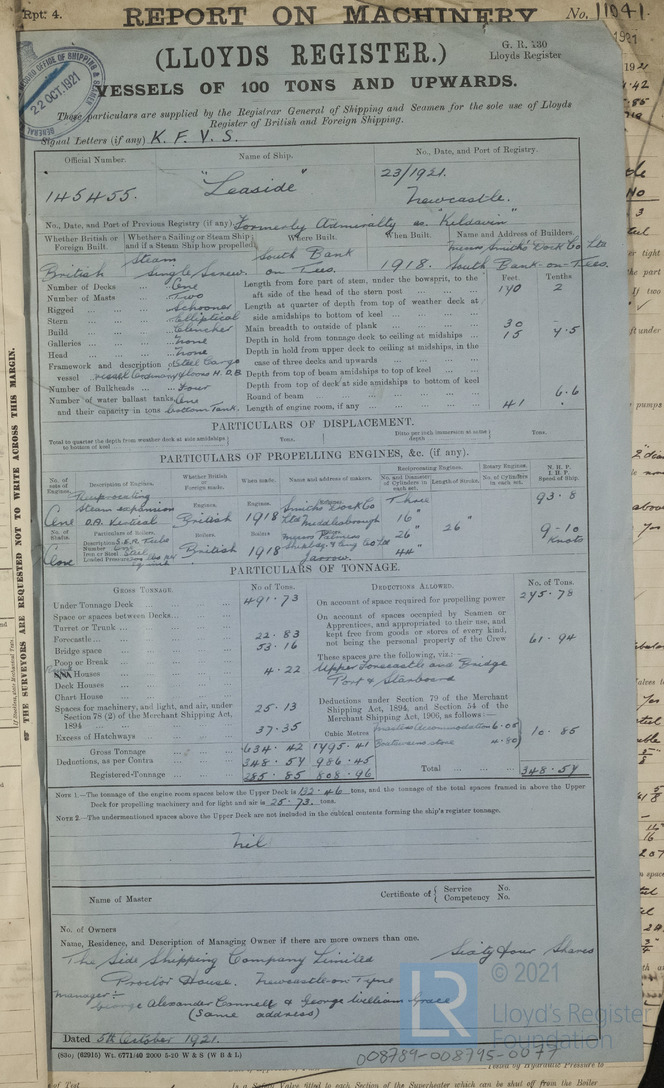 Rpt: 4.
REPORT ON MACHINERY
No. 11041.
(LLOYDS REGISTER.)
G. R. 130
Lloyds Register
VESSELS OF 100 TONS AND UPWARDS.
22 OCT. 1921
These particulars are supplied by the Registrar General of Shipping and Seamen for the sole use of Lloyds
Register of British and Foreign Shipping.
Signal Letters (if any) K. F. V. S.
Official Number. Name of Ship. No., Date, and Port of Registry.
145455. "Leaside" 23/1921.
Newcastle.
No., Date, and Port of Previous Registry (if any). Formerly Admiralty as "Kildavin"
Whether British or Foreign Built. Whether a Sailing or Steam Ship and if a Steam Ship how propelled. Where Built. When Built. Name and Address of Builders.
British Steam Single Screw. South Bank on-Tees. 1918. Messrs Smith's Dock Co Ltd South Bank-on-Tees.
Feet. Tenths
Number of Decks One
Number of Masts Two
Rigged Schooner
Stern Elliptical
Build Clencher
Galleries None
Head None
Framework and description of vessel Steel Cargo
Number of Bulkheads Four
Number of water ballast tanks, One
and their capacity in tons bottom Tank.
Length from fore part of stem, under the bowsprit, to the aft side of the head of the stern post 170 2
Length at quarter of depth from top of weather deck at side amidships to bottom of keel
Main breadth to outside of plank 30
Depth in hold from tonnage deck to ceiling at midships 15 4.5
Depth in hold from upper deck to ceiling at midships, in the case of three decks and upwards
Depth from top of beam amidships to top of keel
Depth from top of deck at side amidships to bottom of keel
Round of beam 6.6
Length of engine room, if any 41 .
PARTICULARS OF DISPLACEMENT.
Total to quarter the depth from weather deck at side amidships to bottom of keel Tons. Ditto per inch immersion at same depth Tons.
PARTICULARS OF PROPELLING ENGINES, &c. (if any).
No. of sets of Engines. Description of Engines. Whether British or Foreign made. When made. Name and address of makers. Reciprocating Engines. Rotary Engines. N. H. P. I. H. P. Speed of Ship.
No. and Diameter of Cylinders in each set. Length of Stroke. No. of Cylinders in each set.
One Steam expansion D.A. Vertical British 1918 Smiths Dock Co Ltd Middlesbrough Three 16" 26" 44" 26" 93.8
One British 1918 Messrs Palmers Jarrow. 9-10 Knots
PARTICULARS OF TONNAGE.
GROSS TONNAGE. No of Tons.
Under Tonnage Deck 491.73
Space or spaces between Decks
Turret or Trunk
Forecastle 22.83
Bridge space 53.16
Poop or Break
Houses 4.22
Deck Houses
Chart House
Spaces for machinery, and light, and air, under Section 78 (2) of the Merchant Shipping Act, 1894 25.13
Excess of Hatchways 37.35
Cubic Metres
Gross Tonnage 634.42 1795.41
Deductions, as per Contra 348.57 986.45
Registered Tonnage 285.85 808.96
DEDUCTIONS ALLOWED. No. of Tons.
On account of space required for propelling power 275.78
On account of spaces occupied by Seamen or Apprentices, and appropriated to their use, and kept free from goods or stores of every kind, not being the personal property of the Crew 61.94
These spaces are the following, viz.:—
Upper Forecastle and Bridge
Port & Starboard
Deductions under Section 79 of the Merchant Shipping Act, 1894, and Section 54 of the Merchant Shipping Act, 1906, as follows:—
Masters Accommodation 6.05
Boatswains store 4.80
10.85
Total 348.57
NOTE 1.—The tonnage of the engine room spaces below the Upper Deck is 132.46 tons, and the tonnage of the total spaces framed in above the Upper
Deck for propelling machinery and for light and air is 25.73. tons.
NOTE 2.—The undermentioned spaces above the Upper Deck are not included in the cubical contents forming the ship's register tonnage.
Nil
Name of Master Certificate of { Service No. Competency No.
No. of Owners
Name, Residence, and Description of Managing Owner if there are more owners than one.
The Side Shipping Company Limited Sixty four Shares
Proctor House. Newcastle on Tyne
Manager:- George Alexander Connell & George William Grace
(Same address)
Dated 5th October 1921.
(83o) (62915) Wt. 6771/40 2000 5-20 W & S (W B & L)
008789-008795-0077
LR
© 2021
Lloyd's Register
Foundation
THE SURVEYORS ARE REQUESTED NOT TO WRITE ACROSS THIS MARGIN.